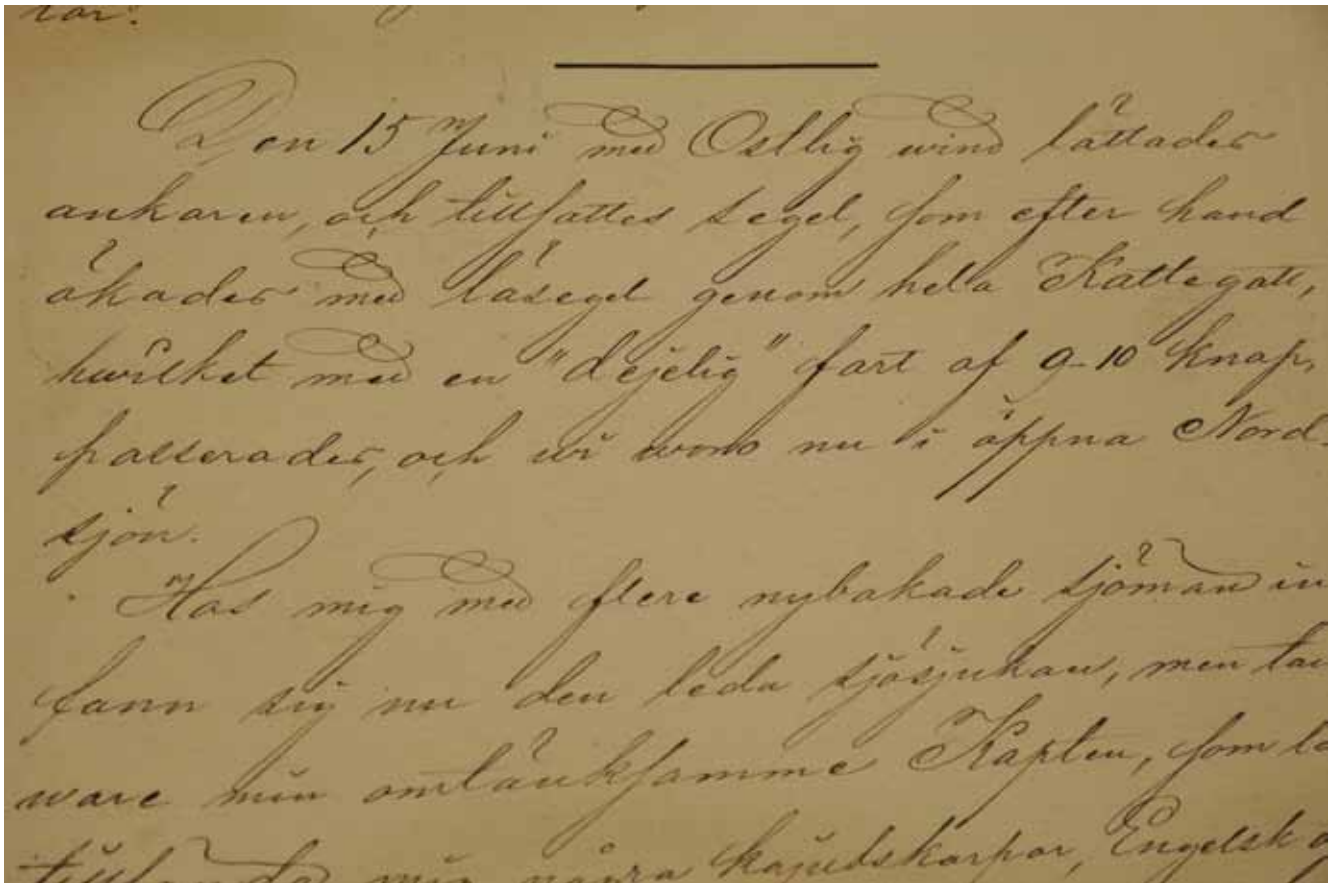 tor.
Den 15 Juni med Ostlig wind lättades
ankaren, och tillsattes segel, som efter hand
ökades med läsegel genom hela Kattegatt,
hwilket med en "dejelig" fart af 9-10 knap,
passerades, och wi woro nu i öppna Nord-
sjön.
Hos mig med flere nybakade sjömän in
fann sig nu den leda sjösjukan, men tac
ware min omtänksamme Kapten, som lä
mig några kajutskorpor, Engelsk